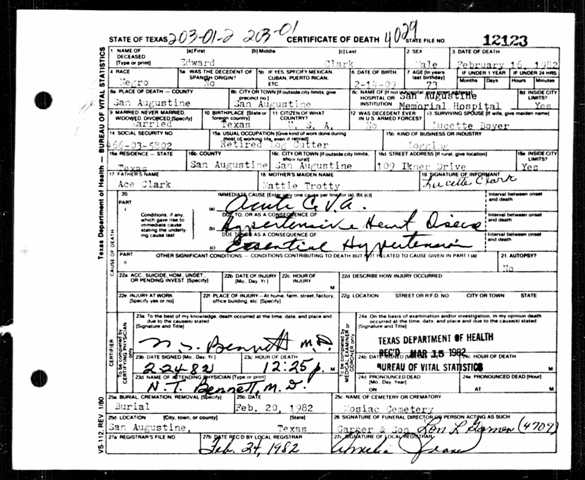 203-01-2 203-01 4029
STATE OF TEXAS CERTIFICATE OF DEATH STATE FILE NO. 12123
Texas Department of Health — BUREAU OF VITAL STATISTICS
1 NAME OF DECEASED (Type or print) (a) First (b) Middle (c) Last 2 SEX 3 DATE OF DEATH
Edward Clark Male February 16, 1982
4 RACE 5a WAS THE DECEDENT OF SPANISH ORIGIN? 5b IF YES, SPECIFY MEXICAN, CUBAN, PUERTO RICAN, ETC. 6 DATE OF BIRTH 7 AGE (In years last birthday) IF UNDER 1 YEAR IF UNDER 24 HRS
Months Days Hours Minutes
Negro No
8a PLACE OF DEATH — COUNTY 8b CITY OR TOWN (If outside city limits, give precinct no.) 8d INSIDE CITY LIMITS?
San Augustine San Augustine San Augustine Memorial Hospital Yes
9 MARRIED, NEVER MARRIED, WIDOWED, DIVORCED (Specify) 10 BIRTHPLACE (State or foreign country) 11 CITIZEN OF WHAT COUNTRY? 12 WAS DECEDENT EVER IN U.S. ARMED FORCES? 13 SURVIVING SPOUSE (If wife, give maiden name)
Married Texas U. S. A. No Lucette Boyer
14 SOCIAL SECURITY NO 15a USUAL OCCUPATION (Give kind of work done during most of working life, even if retired) 15b KIND OF BUSINESS OR INDUSTRY
Retired Log Cutter Logging
16a RESIDENCE — STATE 16b COUNTY 16c CITY OR TOWN (If outside city limits, show rural) 16d STREET ADDRESS (If rural, give location) 16e INSIDE CITY LIMITS?
Texas San Augustine San Augustine 109 Ikner Drive Yes
17 FATHER'S NAME 18 MOTHER'S MAIDEN NAME 19 SIGNATURE OF INFORMANT
Ace Clark Mattie Trotty Lucille Clark
20 PART I IMMEDIATE CAUSE Interval between onset and death
(a) Acute C.V.A.
Conditions, if any, which gave rise to immediate cause stating the underlying cause last
DUE TO, OR AS A CONSEQUENCE OF Interval between onset and death
(b) Hypertensive Heart Disease
DUE TO, OR AS A CONSEQUENCE OF Interval between onset and death
(c) Essential Hypertension
CAUSE OF DEATH
PART II OTHER SIGNIFICANT CONDITIONS — CONDITIONS CONTRIBUTING TO DEATH BUT NOT RELATED TO CAUSE GIVEN IN PART I (a) 21 AUTOPSY?
No
22a ACC, SUICIDE, HOM, UNDET OR PENDING INVEST (Specify) 22b DATE OF INJURY (Mo. Day Yr.) 22c HOUR OF INJURY 22d DESCRIBE HOW INJURY OCCURRED
22e INJURY AT WORK (Specify yes or no) 22f PLACE OF INJURY - At home, farm, street, factory, office building, etc. (Specify) 22g LOCATION STREET OR R.F.D. NO CITY OR TOWN STATE
CERTIFIER
23a To the best of my knowledge, death occurred at the time, date, and place and due to the cause(s) stated (Signature and Title)
24a On the basis of examination and/or investigation, in my opinion death occurred at the time, date and place and due to the cause(s) stated (Signature and Title)
N. T. Bennett M.D.
TEXAS DEPARTMENT OF HEALTH
REC'D MAR 15 1982
BUREAU OF VITAL STATISTICS
23b DATE SIGNED (Mo., Day, Yr.) 23c HOUR OF DEATH
2-24-82 12:25 p M
23d NAME OF ATTENDING PHYSICIAN (Type or Print) 24d PRONOUNCED DEAD (Mo. Day Year) 24e PRONOUNCED DEAD (Hour)
N. T. Bennett, M.D. ON AT M
25a BURIAL, CREMATION, REMOVAL (Specify) 25b DATE 25c NAME OF CEMETERY OR CREMATORY
Burial Feb. 20, 1982 Mosiac Cemetery
25d LOCATION (City, town, or county) (State) 26 SIGNATURE OF FUNERAL DIRECTOR OR PERSON ACTING AS SUCH
San Augustine, Texas (4707)
27a REGISTRAR'S FILE NO 27b DATE REC'D BY LOCAL REGISTRAR 27c SIGNATURE OF LOCAL REGISTRAR
Feb. 24, 1982
VS-112, REV 1/80